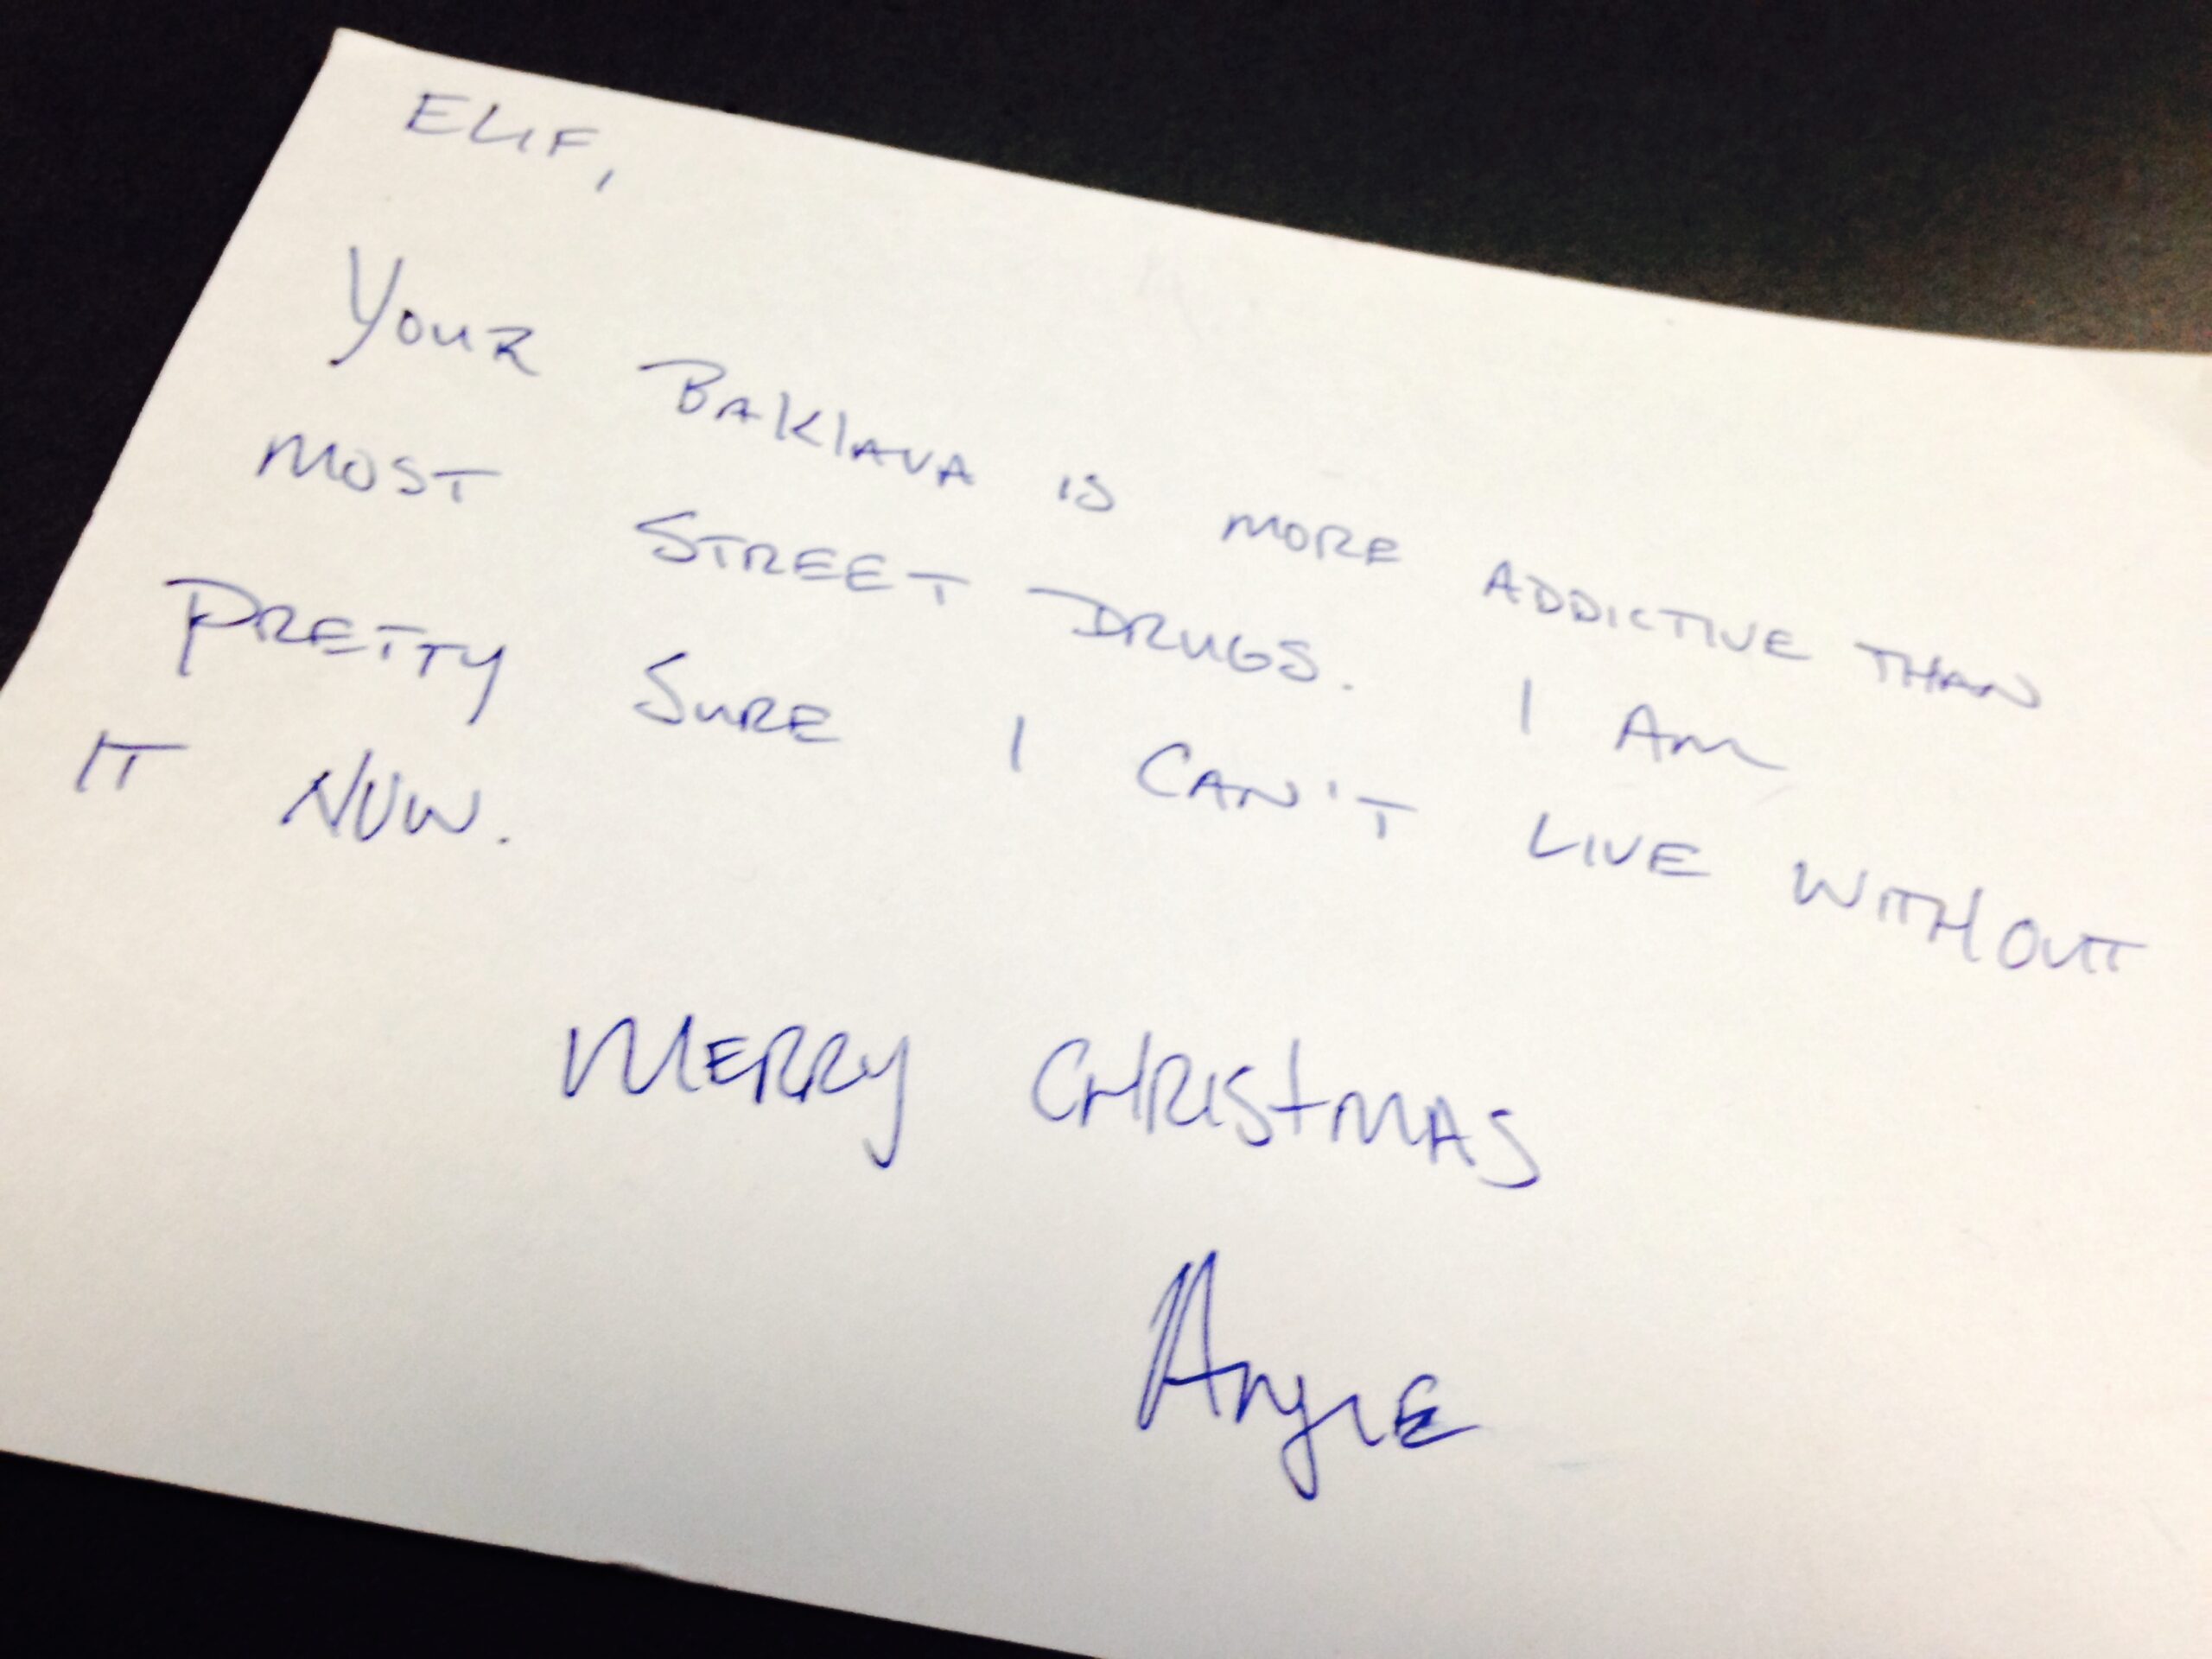 ELIF,
YOUR BAKlAVA IS MORE ADDICTIVE THAN
MOST STREET DRUGS. I AM
PRETTY SURE I CAN'T LIVE WITHOUT
IT NOW.
MERRY CHRISTMAS
Angie